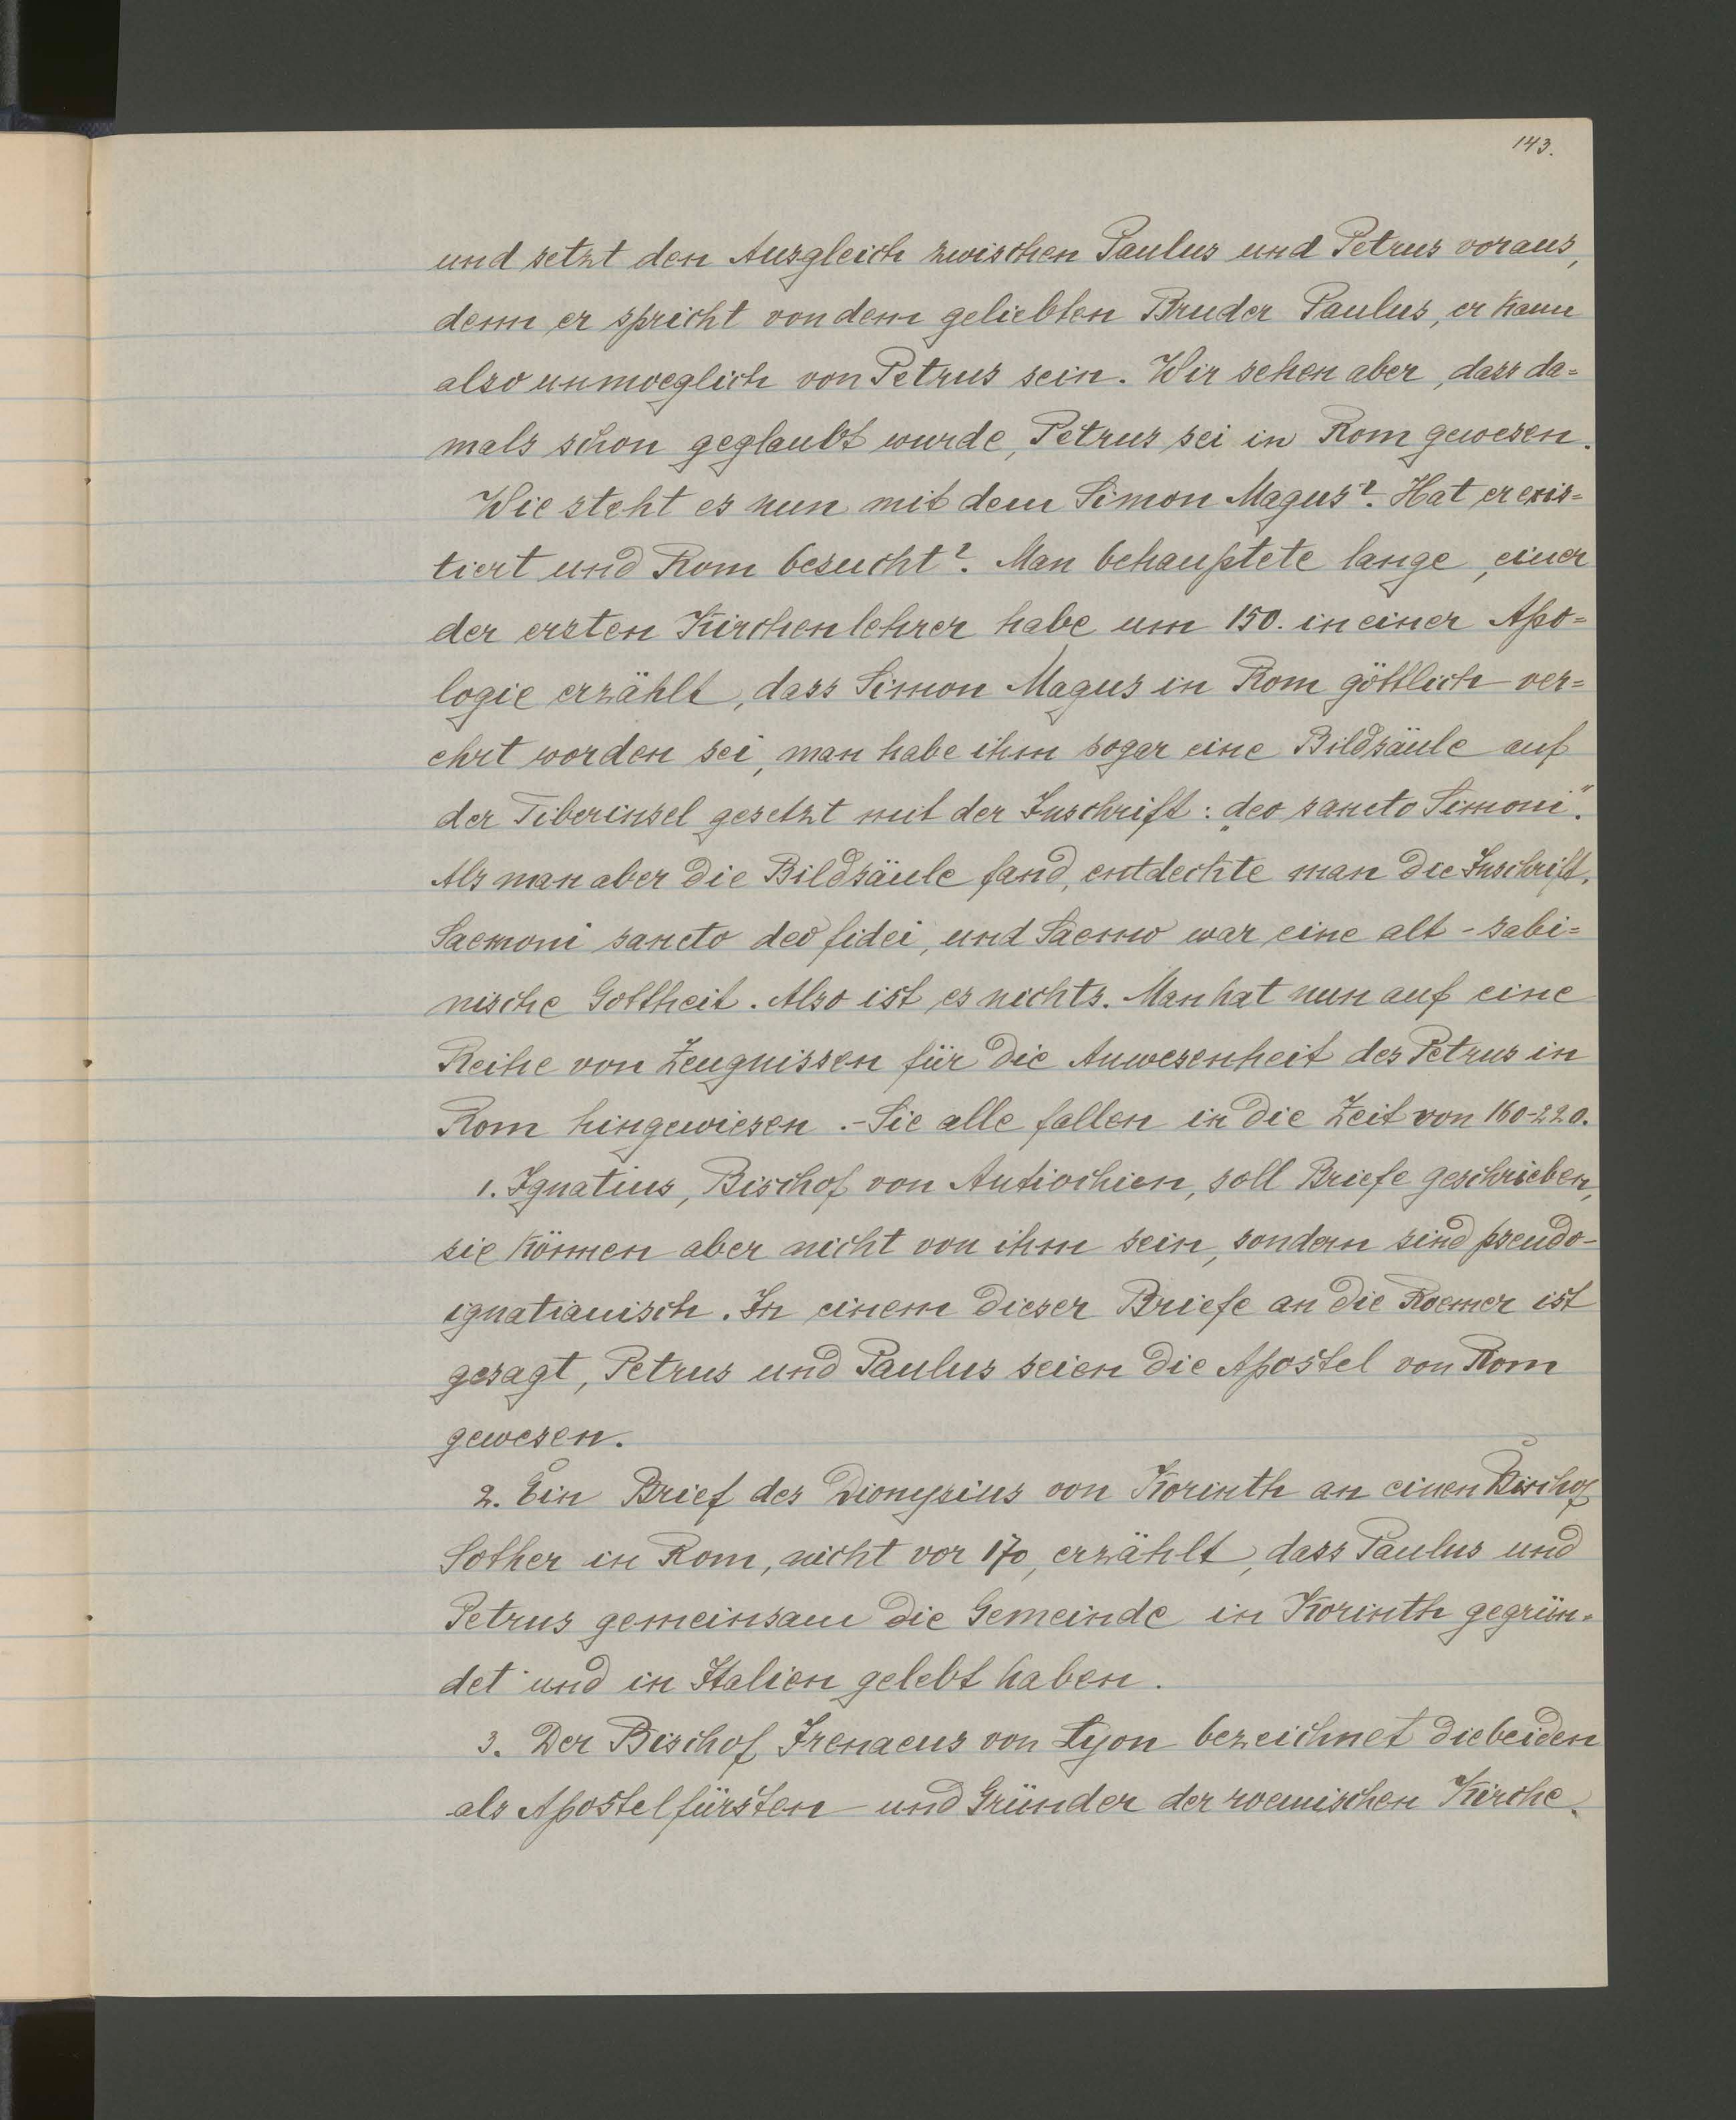 143.
und setzt den Ausgleich zwischen Paulus und Petrus voraus,
denn er spricht von dem geliebten Bruder Paulus, er kann
also unmoeglich von Petrus sein. Wir sehen aber, dass da=
mals schon geglaubt wurde, Petrus sei in Rom gewesen.
Wie steht es nun mit dem Simon Magus?. Hat er exis=
tiert und Rom besucht?. Man behauptete lange, einer
der ersten Kirchenlehrer habe um 150. in einer Apo=
logie erzählt, dass Simon Magus in Rom göttlich ver=
ehrt worden sei, man habe ihm sogar eine Bildsäule auf
der Tiberinsel gesetzt mit der Inschrift: „deo sancto Simoni".
Als man aber die Bildsäule fand, entdeckte man die Inschrift.
Saemoni sancto deo fidei, und Saemo war eine alt-sabi=
nische Gottheit. Also ist es nichts. Man hat nun auf eine
Reihe von Zeugnissen für die Anwesenheit des Petrus in
Rom hingewiesen.- Sie alle fallen in die Zeit von 160-220.
1. Ignatius, Bischof von Antiochien, soll Briefe geschrieben,
sie können aber nicht von ihm sein, sondern sind pseudo-
ignatianisch. In einem dieser Briefe an die Roemer ist
gesagt, Petrus und Paulus seien die Apostel von Rom
gewesen.
2. Ein Brief des Dionysius von Korinth an einen Bischof
Sother in Rom, nicht vor 170, erzählt, dass Paulus und
Petrus gemeinsam die Gemeinde in Korinth gegrün-
det und in Italien gelebt haben.
3. Der Bischof Irenaeus von Lyon bezeichnet die beiden
als Apostelfürsten und Gründer der roemischen Kirche.